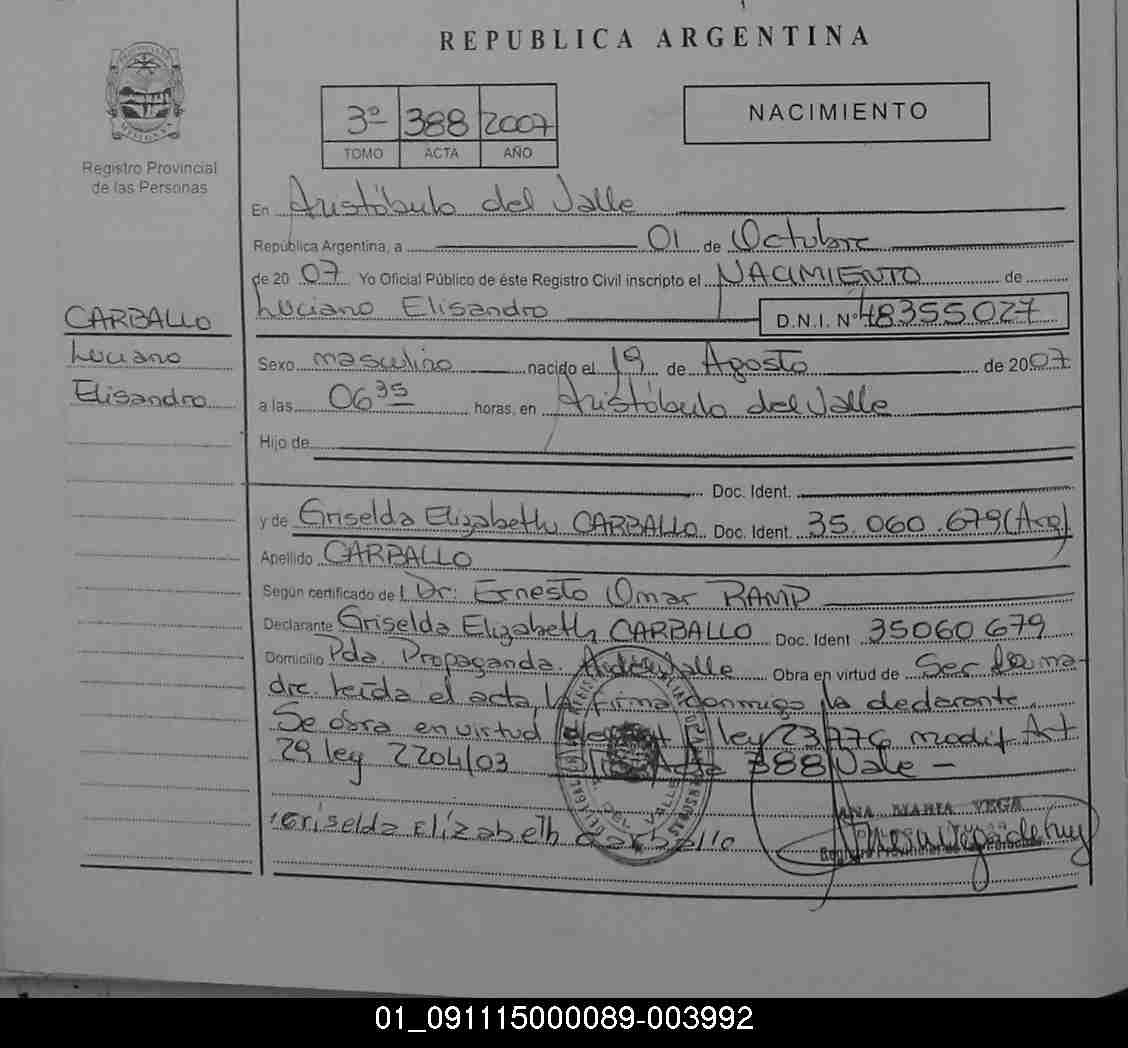 REPUBLICA ARGENTINA
3º 388 2007
TOMO ACTA AÑO
NACIMIENTO
Registro Provincial
de las Personas
CARBALLO
Luciano
Elisandro
En Aristóbulo del Valle
República Argentina, a 01 de Octubre
de 20 07 Yo Oficial Público de éste Registro Civil inscripto el NACIMIENTO de
Luciano Elisandro D.N.I. Nº 48355027
Sexo masculino nacido el 19 de Agosto de 2007
a las 06 35 horas, en Aristóbulo del Valle
Hijo de
Doc. Ident.
y de Griselda Elizabeth CARBALLO Doc. Ident. 35.060.679 (Arg)
Apellido CARBALLO
Según certificado de l Dr. Ernesto Omar RAMP
Declarante Griselda Elizabeth CARBALLO Doc. Ident 35060679
Domicilio Pda. Propaganda. Obra en virtud de Ser la ma-
dre. leída el acta, la firma conmigo la declarante.
Se obra en virtud ley 23776 modif Art
29 ley 2204/03 388 Vale -
ANA MARIA VEGA
Griselda Elizabeth carballo
01_091115000089-003992